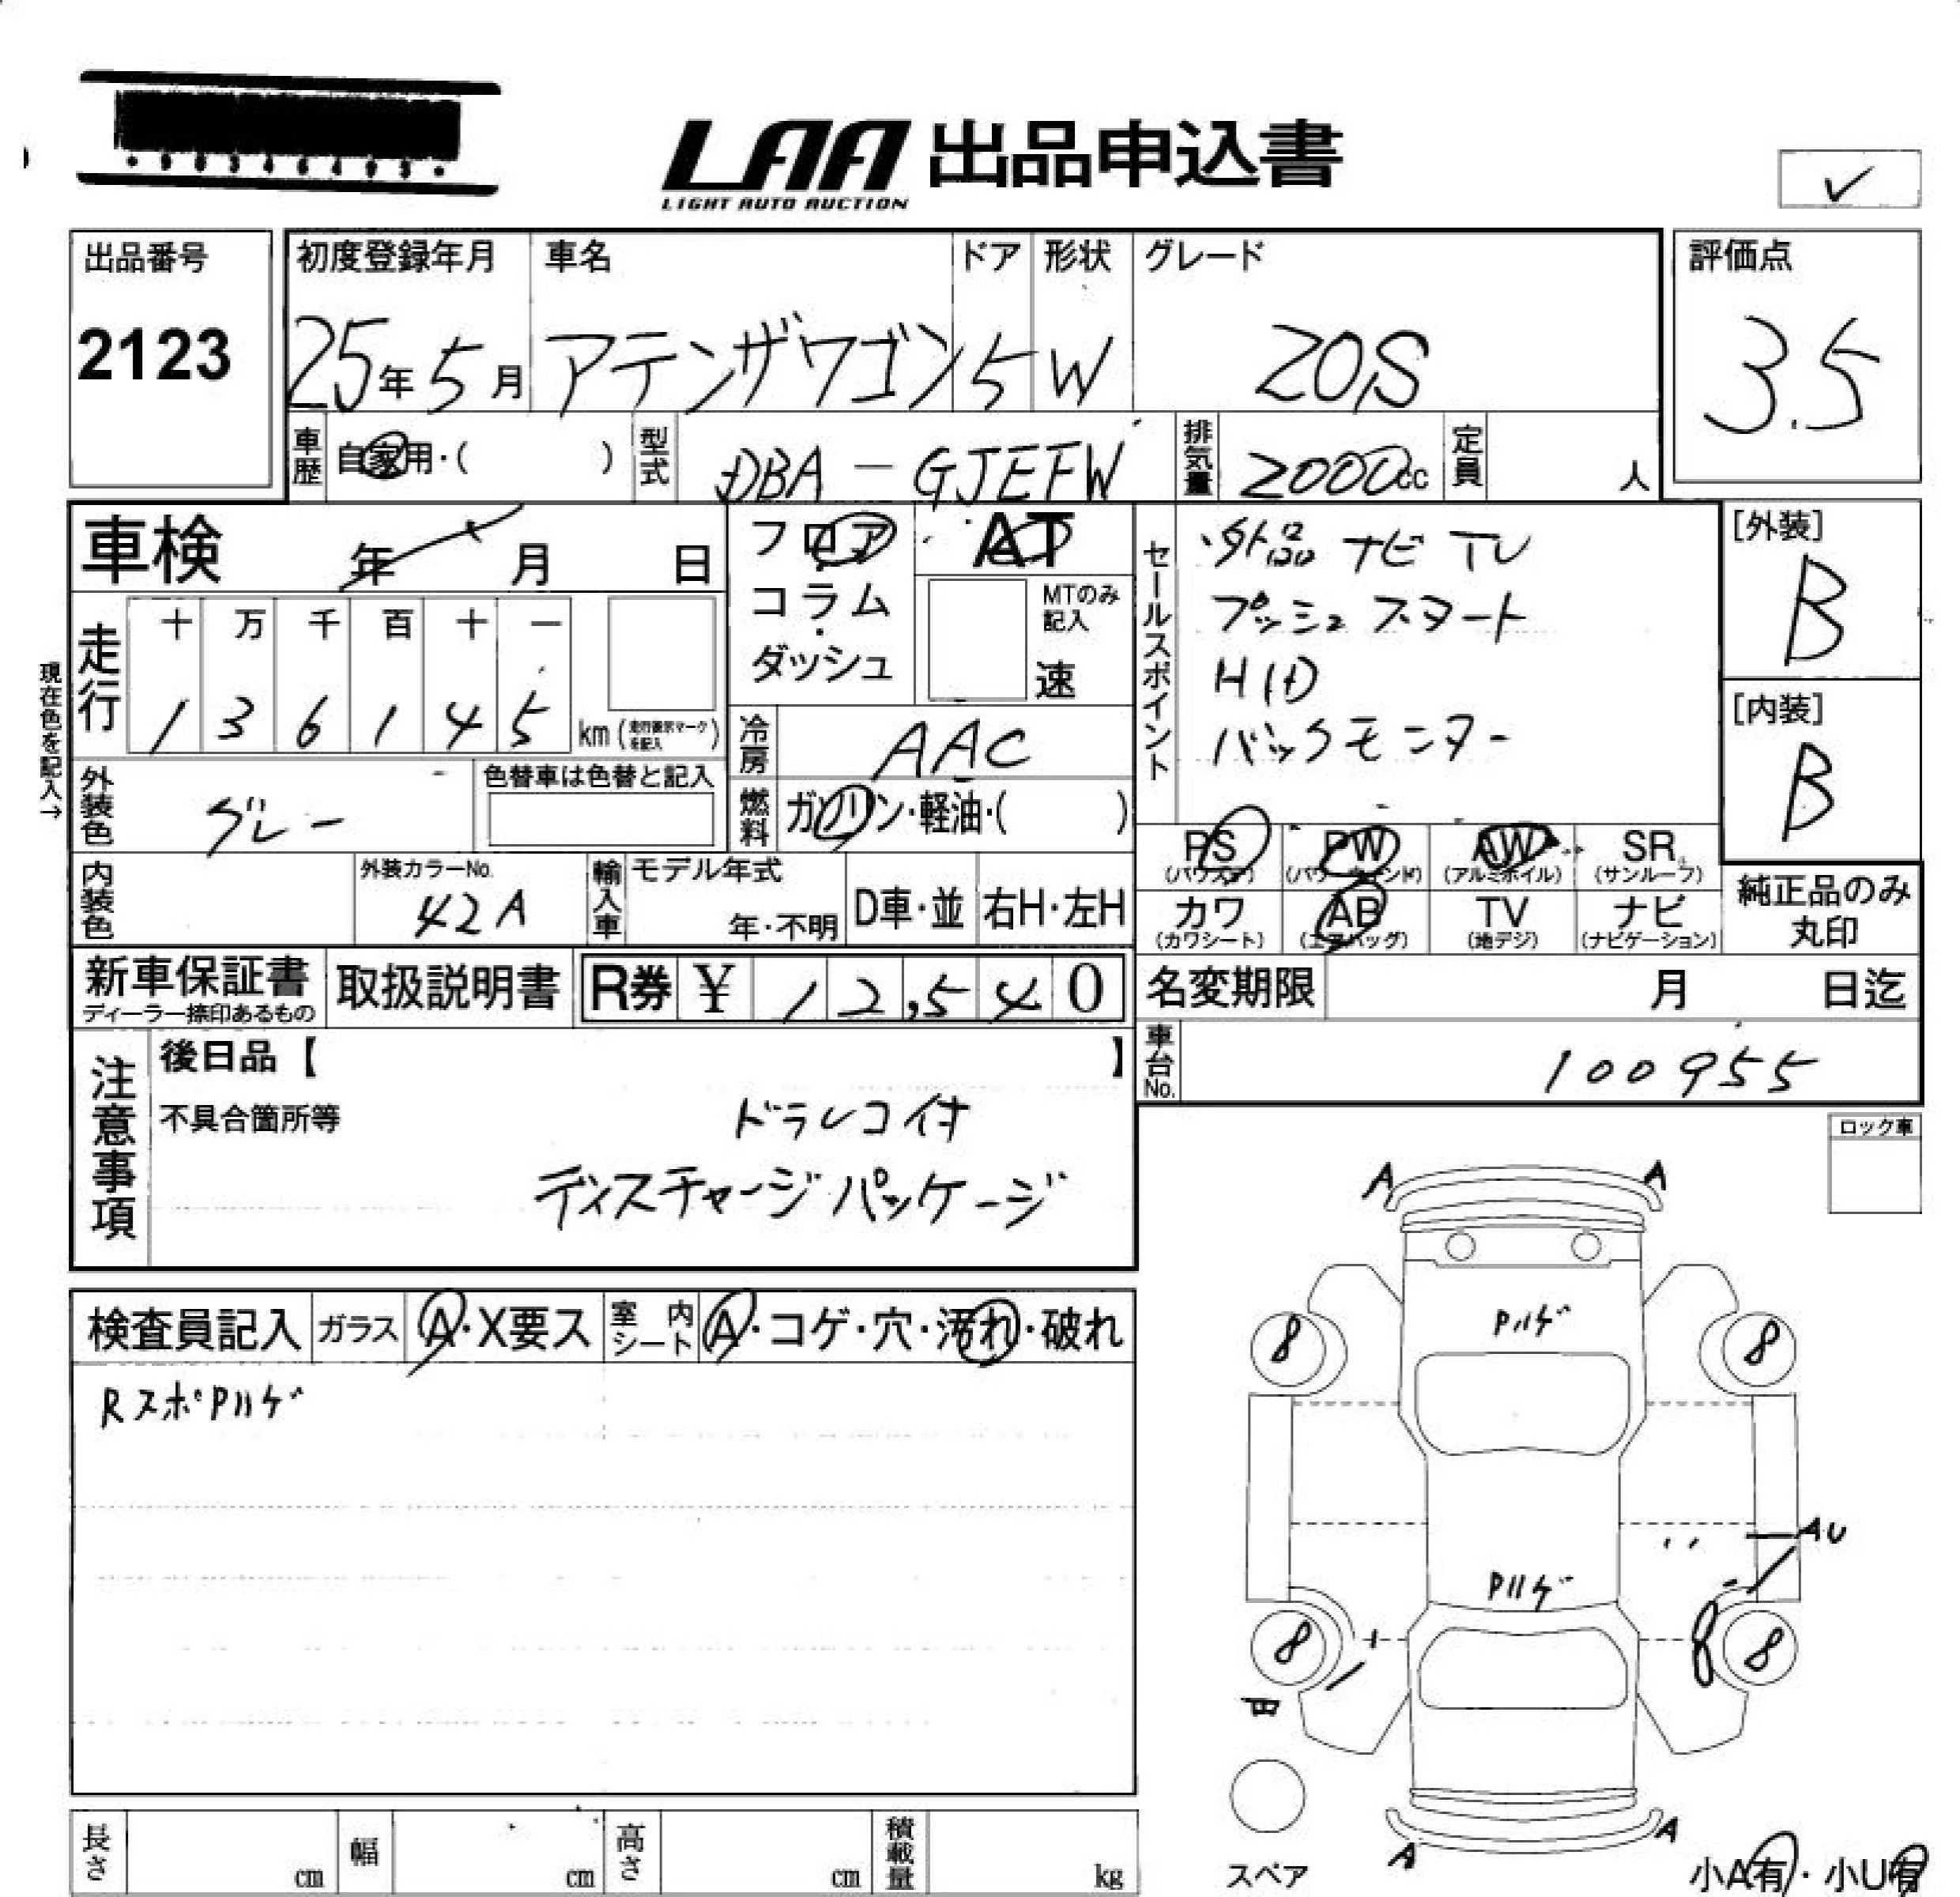 LAA 出品申込書
LIGHT AUTO AUCTION
✓
出品番号
2123
初度登録年月 車名 ドア 形状 グレード
25年5月 アテンザワゴン 5 W 20S
評価点
3.5
車歴 自家用・( ) 型式 DBA-GJEFW 排気量 2000cc 定員 人
車検 年 月 日
フロア
コラム
・
ダッシュ
AT
MTのみ記入
速
セールスポイント
・外品 ナビ TV
プッシュスタート
HID
バックモニター
[外装]
B
[内装]
B
現在色を記入→
走行 十 万 千 百 十 一
1 3 6 1 4 5 km
冷房 AAC
燃料 ガソリン・軽油・( )
外装色 グレー
色替車は色替と記入
PS PW AW SR
(パワステ) (パワーウィンド) (アルミホイル) (サンルーフ)
カワ AB TV ナビ
(カワシート) (エアバッグ) (地デジ) (ナビゲーション)
純正品のみ
丸印
内装色 外装カラーNo. 42A
輸入車 モデル年式 年・不明 D車・並 右H・左H
新車保証書
ディーラー捺印あるもの
取扱説明書
R券 ¥ 12,540
名変期限 月 日迄
車台No. 100955
注意事項
後日品【 】
不具合箇所等
ドラレコ付
ディスチャージパッケージ
ロック車
検査員記入 ガラス A・X要ス 室内シート A・コゲ・穴・汚れ・破れ
RスポPハゲ
A A
Pハゲ
8 8
AU
Pハゲ
8 8
A A
スペア
小A有・小U有
長さ cm 幅 cm 高さ cm 積載量 kg